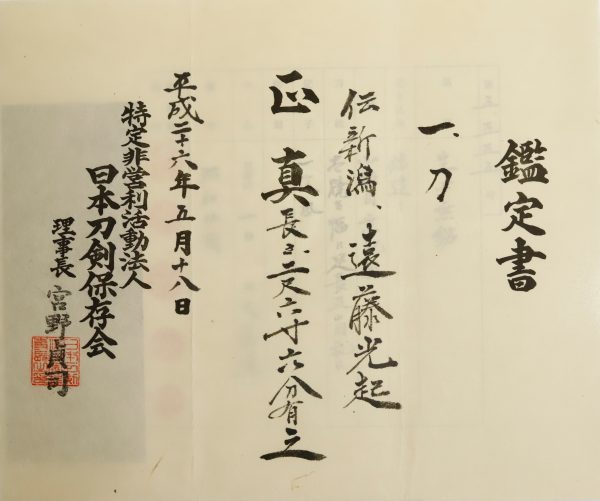 鑑定書
一、刀
伝新潟、遠藤光起
正真
長さ二尺六寸六分有之
平成二十六年五月十八日
特定非営利活動法人
日本刀剣保存会
理事長 宮野貞司